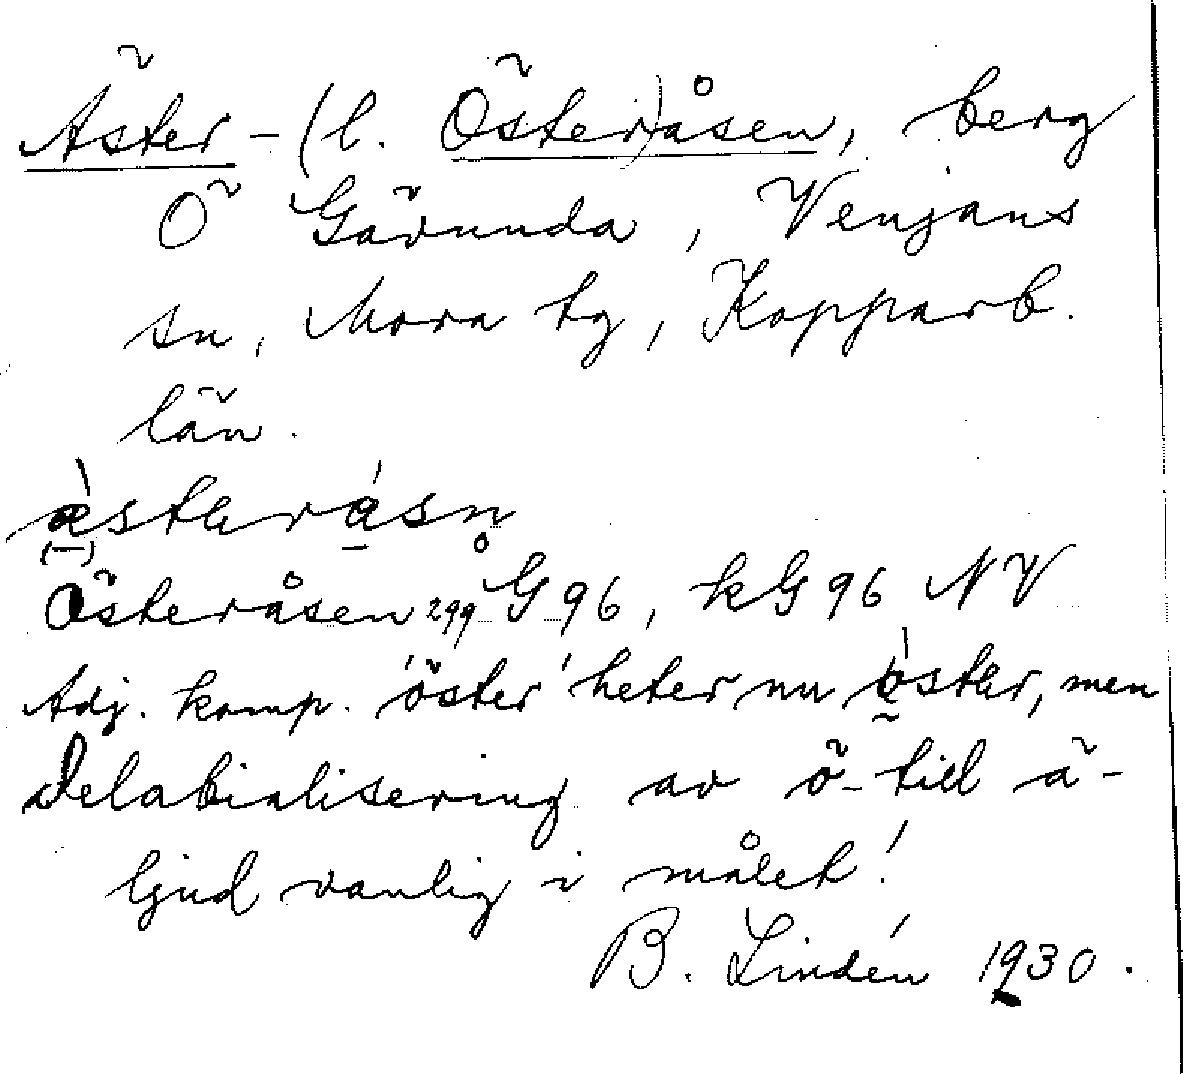 Äster-(l. Öster)åsen, berg
Ö Gävunda, Venjans
sn, Mora tg, Kopparb.
län.
æ̀stærásn̥
Österåsen 299 G 96, kG 96 NV
Adj. komp. 'öster' heter nu ö̀stær, men
delabialisering av ö- till ä-
ljud vanlig i målet!
B. Lindén 1930.